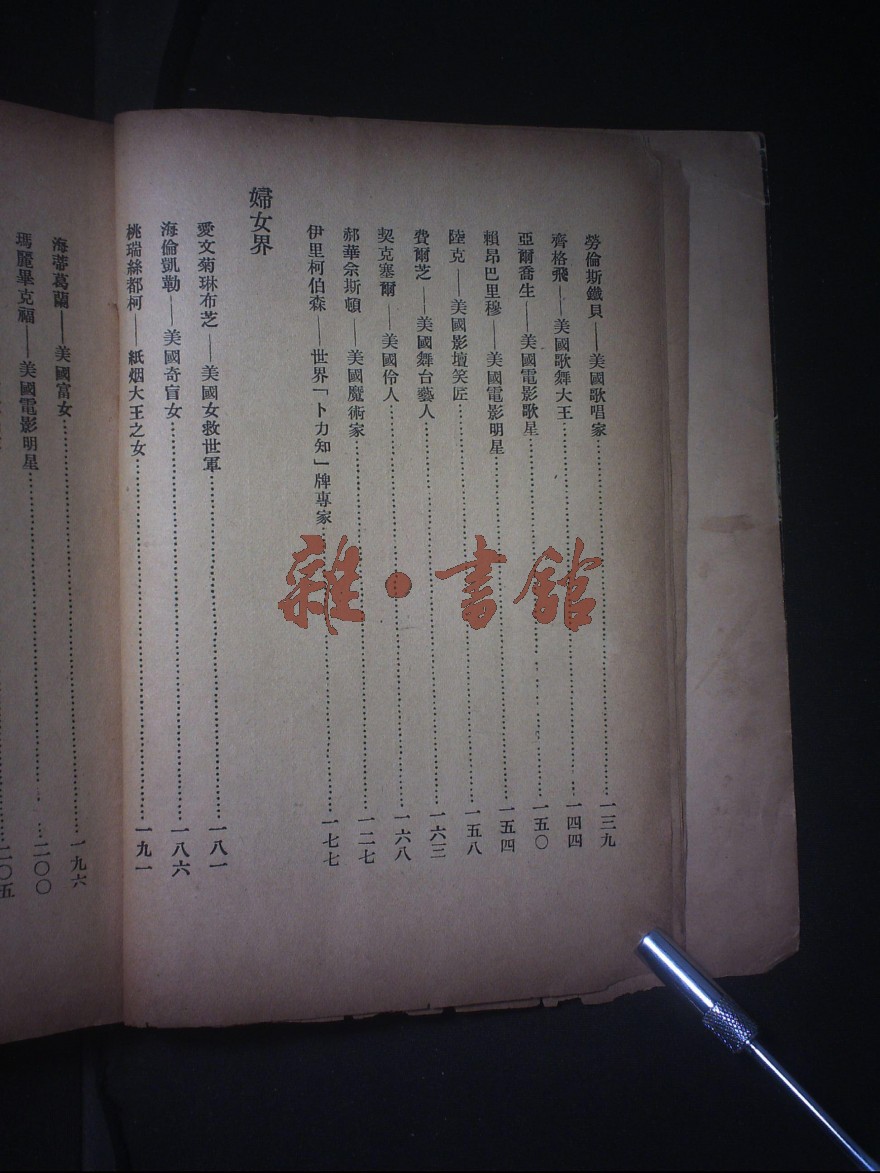 勞倫斯鐵貝——美國歌唱家……一三九
齊格飛——美國歌舞大王……一四四
亞爾喬生——美國電影歌星……一五〇
賴昂巴里穆——美國電影明星……一五四
陸克——美國影壇笑匠……一五八
費爾芝——美國舞台藝人……一六三
契克塞爾——美國伶人……一六八
郝華佘斯頓——美國魔術家……一二七
伊里柯伯森——世界「卜力知」牌專家……一七七
婦女界
愛文菊琳布芝——美國女救世軍……一八一
海倫凱勒——美國奇盲女……一八六
桃瑞絲都柯——紙烟大王之女……一九一
海蒂葛蘭——美國富女……一九六
瑪麗畢克福——美國電影明星……二〇〇
二〇五
雜·書館